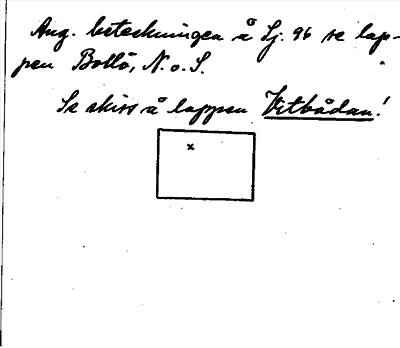 Ang. beteckningen å Sj. 96 se lap-
pen Bollö, N. o. S.
Se skiss å lappen Vitbådan!
x